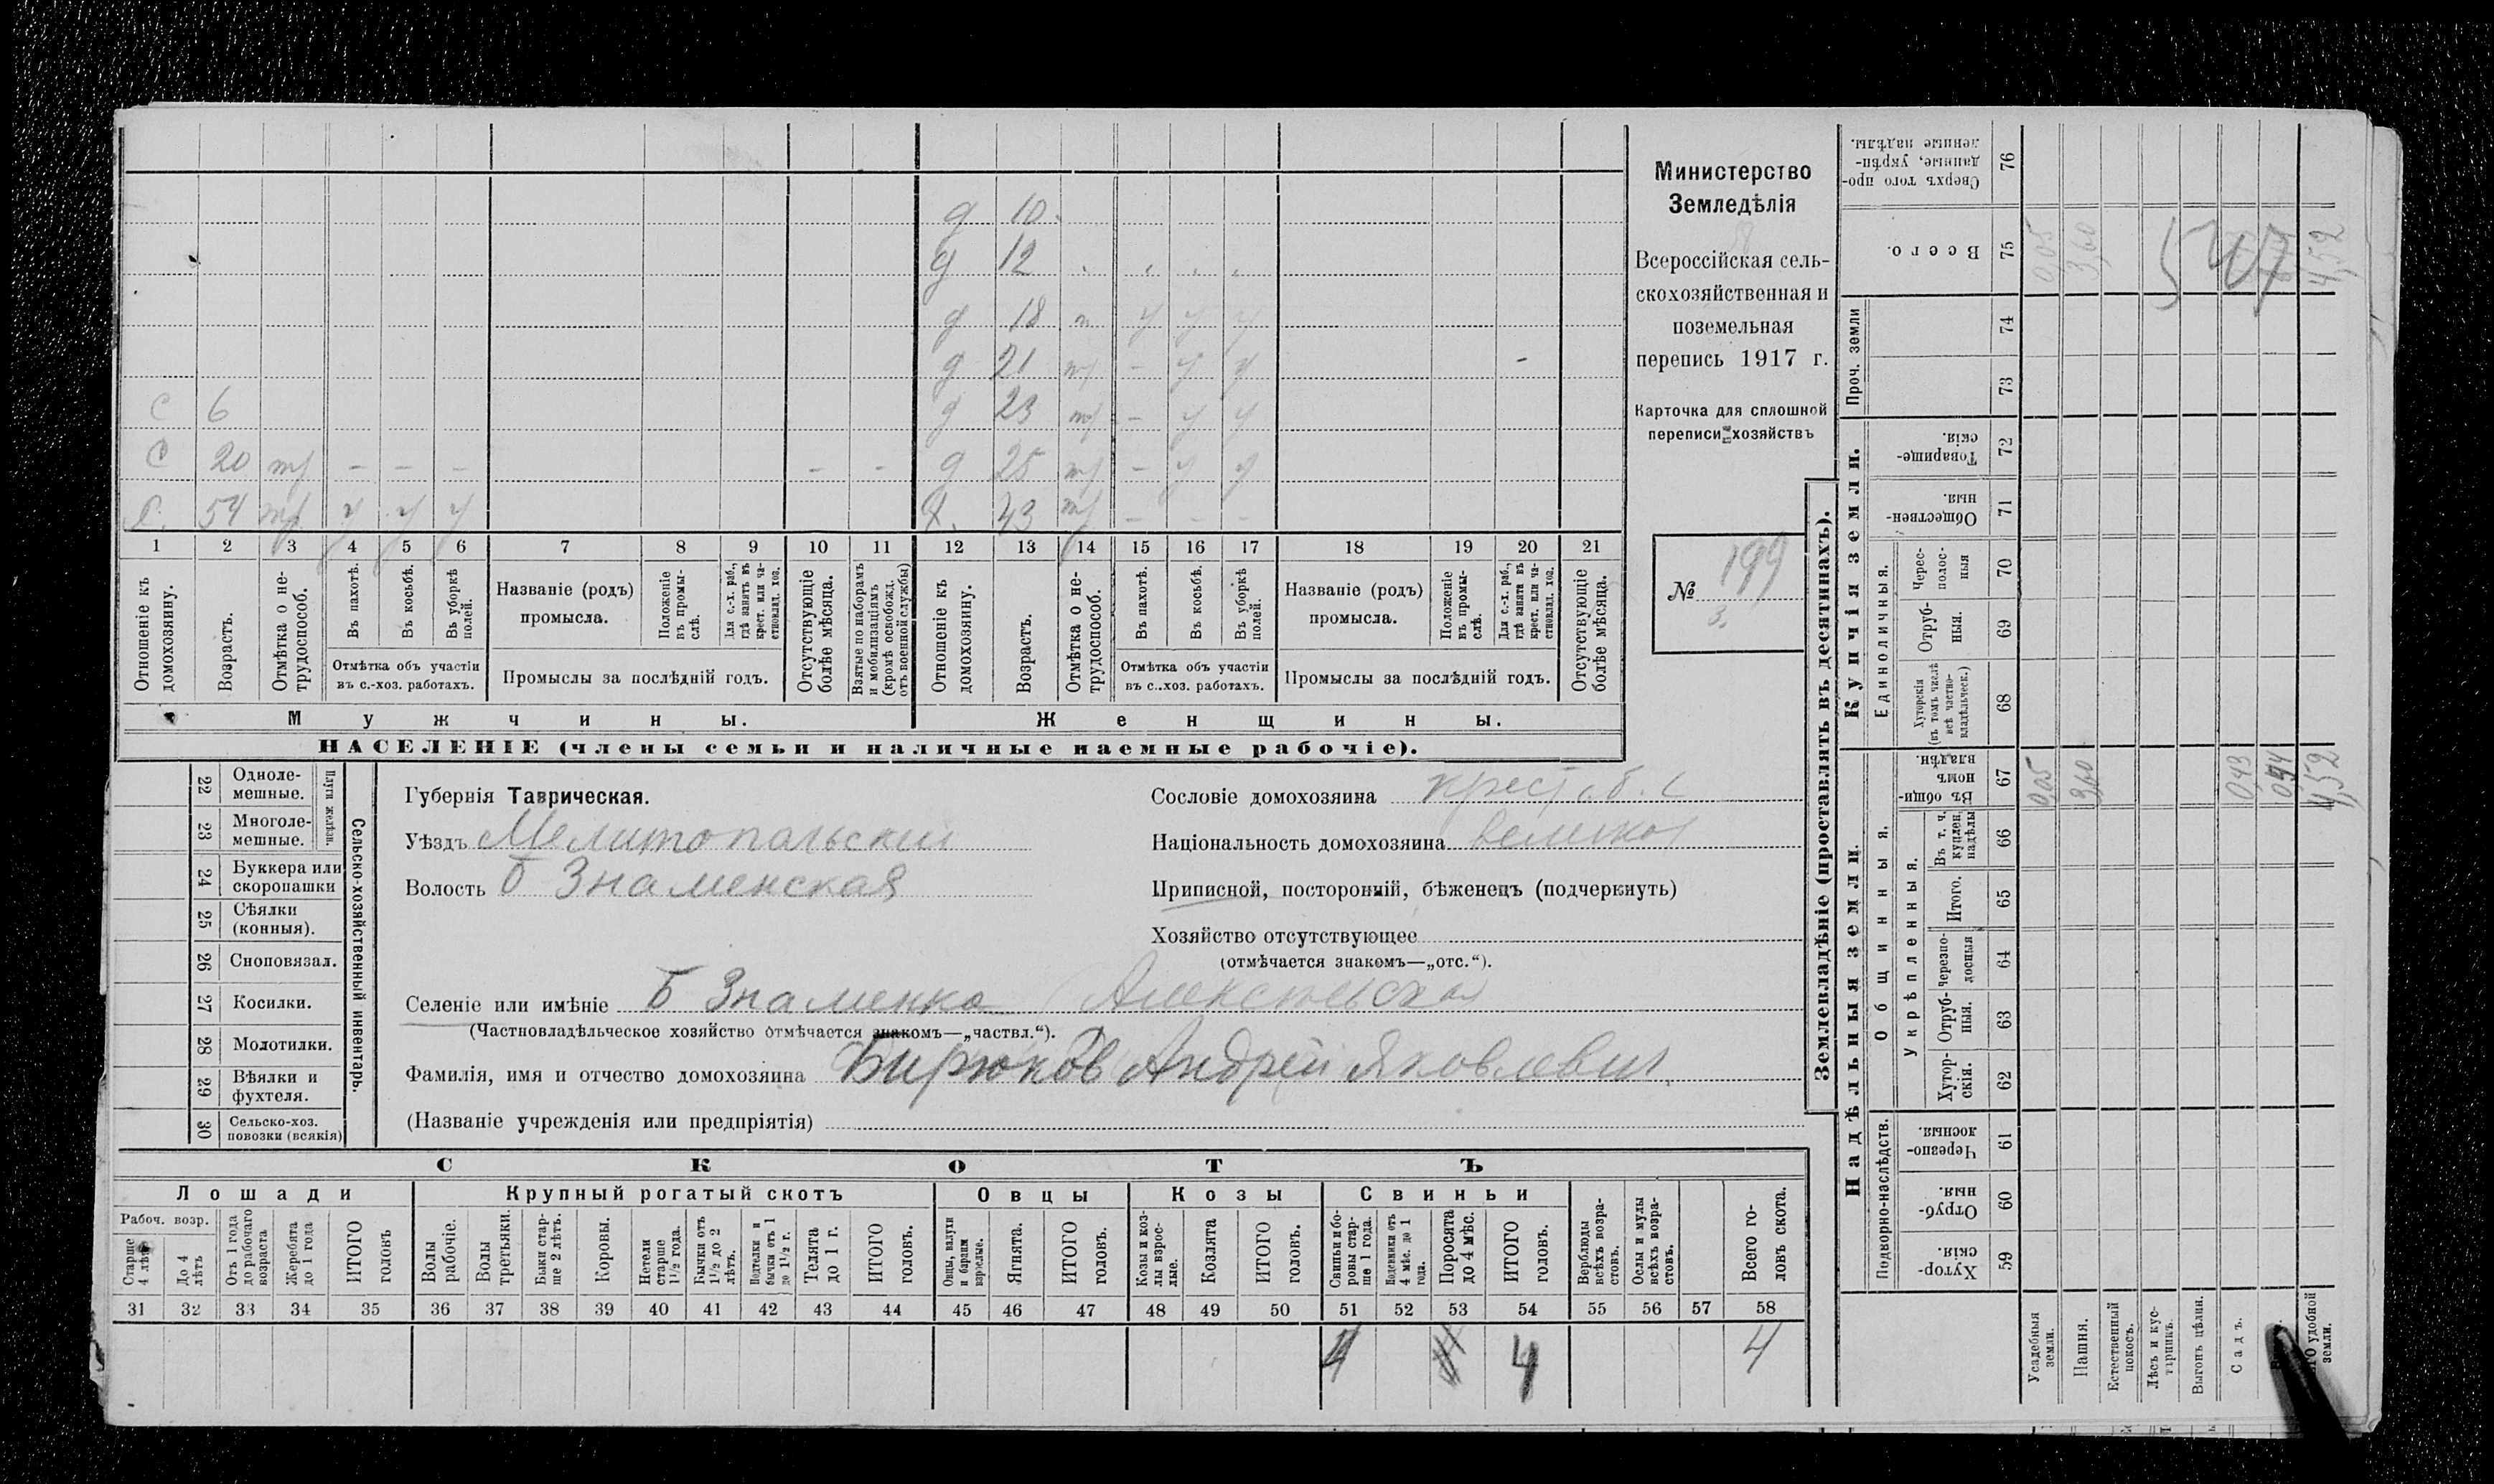 д 10
д 12
д 18 п у у у
д 21 тр - у у -
с 6 д 23 тр - у у
с 20 тр - - - - - д 25 тр - у у
54 тр у у у 43 тр - - -
1 2 3 4 5 6 7 8 9 10 11 12 13 14 15 16 17 18 19 20 21
Отношеніе къ домохозяину.
Возрастъ.
Отмѣтка о не-трудоспособ.
Въ пахотѣ.
Въ косьбѣ.
Въ уборкѣ полей.
Отмѣтка объ участіи
въ с.-хоз. работахъ.
Названіе (родъ)
промысла.
Положеніе въ промы-слѣ.
Для с.-х. раб., гдѣ занятъ въ крест. или ча-стновлад. хоз.
Промыслы за послѣдній годъ.
Отсутствующіе болѣе мѣсяца.
Взятые по наборамъ и мобилизаціямъ (кромѣ освобожд. отъ военной службы)
Отношеніе къ домохозяину.
Возрастъ.
Отмѣтка о не-трудоспособ.
Въ пахотѣ.
Въ косьбѣ.
Въ уборкѣ полей.
Отмѣтка объ участіи
въ с.-хоз. работахъ.
Названіе (родъ)
промысла.
Положеніе въ промы-слѣ.
Для с.-х. раб., гдѣ занята въ крест. или ча-стновлад. хоз.
Промыслы за послѣдній годъ.
Отсутствующіе болѣе мѣсяца.
Мужчины.
Женщины.
НАСЕЛЕНІЕ (члены семьи и наличные наемные рабочіе).
Министерство
Земледѣлія
Всероссійская сель-
скохозяйственная и
поземельная
перепись 1917 г.
Карточка для сплошной
переписи хозяйствъ
№ 199
3.
22 Одноле-мешные.
23 Многоле-мешные.
Плуги желѣзн.
24 Буккера или скоропашки
25 Сѣялки (конныя).
26 Сноповязал.
27 Косилки.
28 Молотилки.
29 Вѣялки и фухтеля.
30 Сельско-хоз. повозки (всякія)
Сельско-хозяйственный инвентарь.
Губернія Таврическая.
Уѣздъ Мелитопольский
Волость Б Знаменская
Сословіе домохозяина крест. б. с
Національность домохозяина велико
Приписной, посторонній, бѣженецъ (подчеркнуть)
Хозяйство отсутствующее
(отмѣчается знакомъ—„отс.“).
Селеніе или имѣніе Б Знаменка Алексеевска
(Частновладѣльческое хозяйство отмѣчается знакомъ—„частвл.“).
Фамилія, имя и отчество домохозяина Бирюков Андрей Яковлевич
(Названіе учрежденія или предпріятія)
СКОТЪ
Лошади
Крупный рогатый скотъ
Овцы
Козы
Свиньи
Рабоч. возр.
Старше 4 лѣтъ
До 4 лѣтъ
Отъ 1 года до рабочаго возраста
Жеребята до 1 года
ИТОГО головъ
Волы рабочіе.
Волы третьяки.
Быки стар-ше 2 лѣтъ.
Коровы.
Нетели старше 1½ года.
Бычки отъ 1½ до 2 лѣтъ.
Подтелки и бычки отъ 1 до 1½ г.
Телята до 1 г.
ИТОГО головъ.
Овцы, валухи и бараны взрослые.
Ягнята.
ИТОГО головъ.
Козы и коз-лы взрос-лые.
Козлята
ИТОГО головъ.
Свиньи и бо-ровы стар-ше 1 года.
Подсвинки отъ 4 мѣс. до 1 года.
Поросята до 4 мѣс.
ИТОГО головъ.
Верблюды всѣхъ возра-стовъ.
Ослы и мулы всѣхъ возра-стовъ.
Всего го-ловъ скота.
31 32 33 34 35 36 37 38 39 40 41 42 43 44 45 46 47 48 49 50 51 52 53 54 55 56 57 58
4 4 4
Землевладѣніе (проставлять въ десятинахъ).
Купчія земли.
Надѣльныя земли.
Проч. земли
Единоличныя.
Общинныя.
Укрѣпленныя.
Подворно-наслѣдств.
76 Сверхъ того про-данные, укрѣп-ленные надѣлы.
75 Всего. 0,05 3,60 547 4,52
74
73
72 Товарище-скія.
71 Обществен-ныя.
70 Черес-полос-ныя
69 Отруб-ныя.
68 Хуторскія (въ томъ числѣ всѣ частно-владѣльческ.)
67 Въ общи-номъ владѣн. 0,05 3,60 0,43 4,52
66 Въ т. ч. куплен. надѣлы
65 Итого.
64 Черезпо-лосныя
63 Отруб-ныя.
62 Хутор-скія.
61 Черезпо-лосныя.
60 Отруб-ныя.
59 Хутор-скія.
Усадебныя земли.
Пашня.
Естественный покосъ.
Лѣсъ и кус-тарникъ.
Выгонъ цѣлин.
Садъ.
удобной земли.